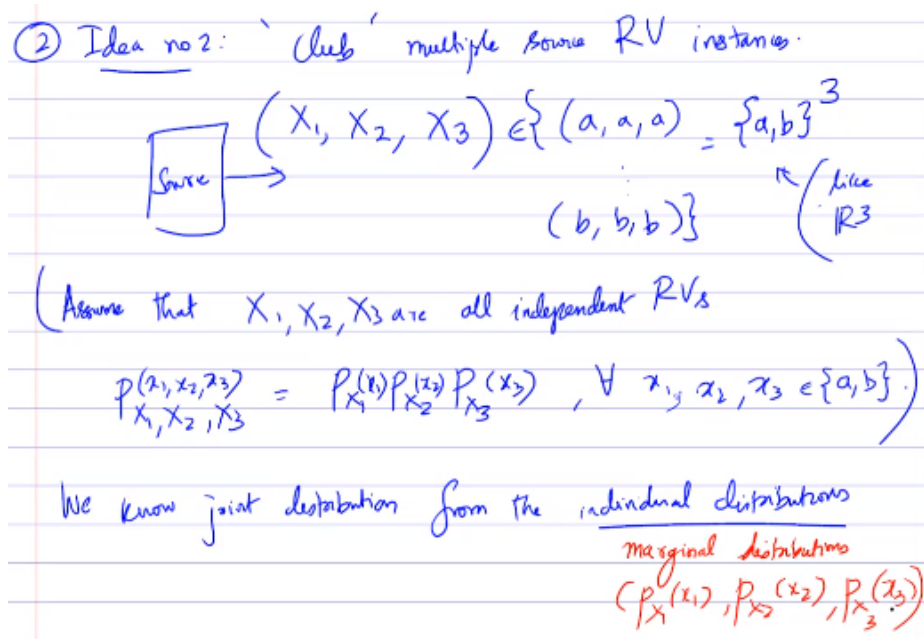 ② Idea no 2: 'Club' multiple source RV instances.
Source → (X₁, X₂, X₃) ∈ { (a, a, a) = {a,b}³
⋮ (like
(b, b, b)} ℝ3
(Assume that X₁, X₂, X₃ are all independent RVs
P_{X₁,X₂,X₃}(x₁,x₂,x₃) = P_{X₁}(x₁) P_{X₂}(x₂) P_{X₃}(x₃), ∀ x₁, x₂, x₃ ∈ {a,b}.)
We know joint distribution from the individual distributions
marginal distributions
(P_{X₁}(x₁), P_{X₂}(x₂), P_{X₃}(x₃))